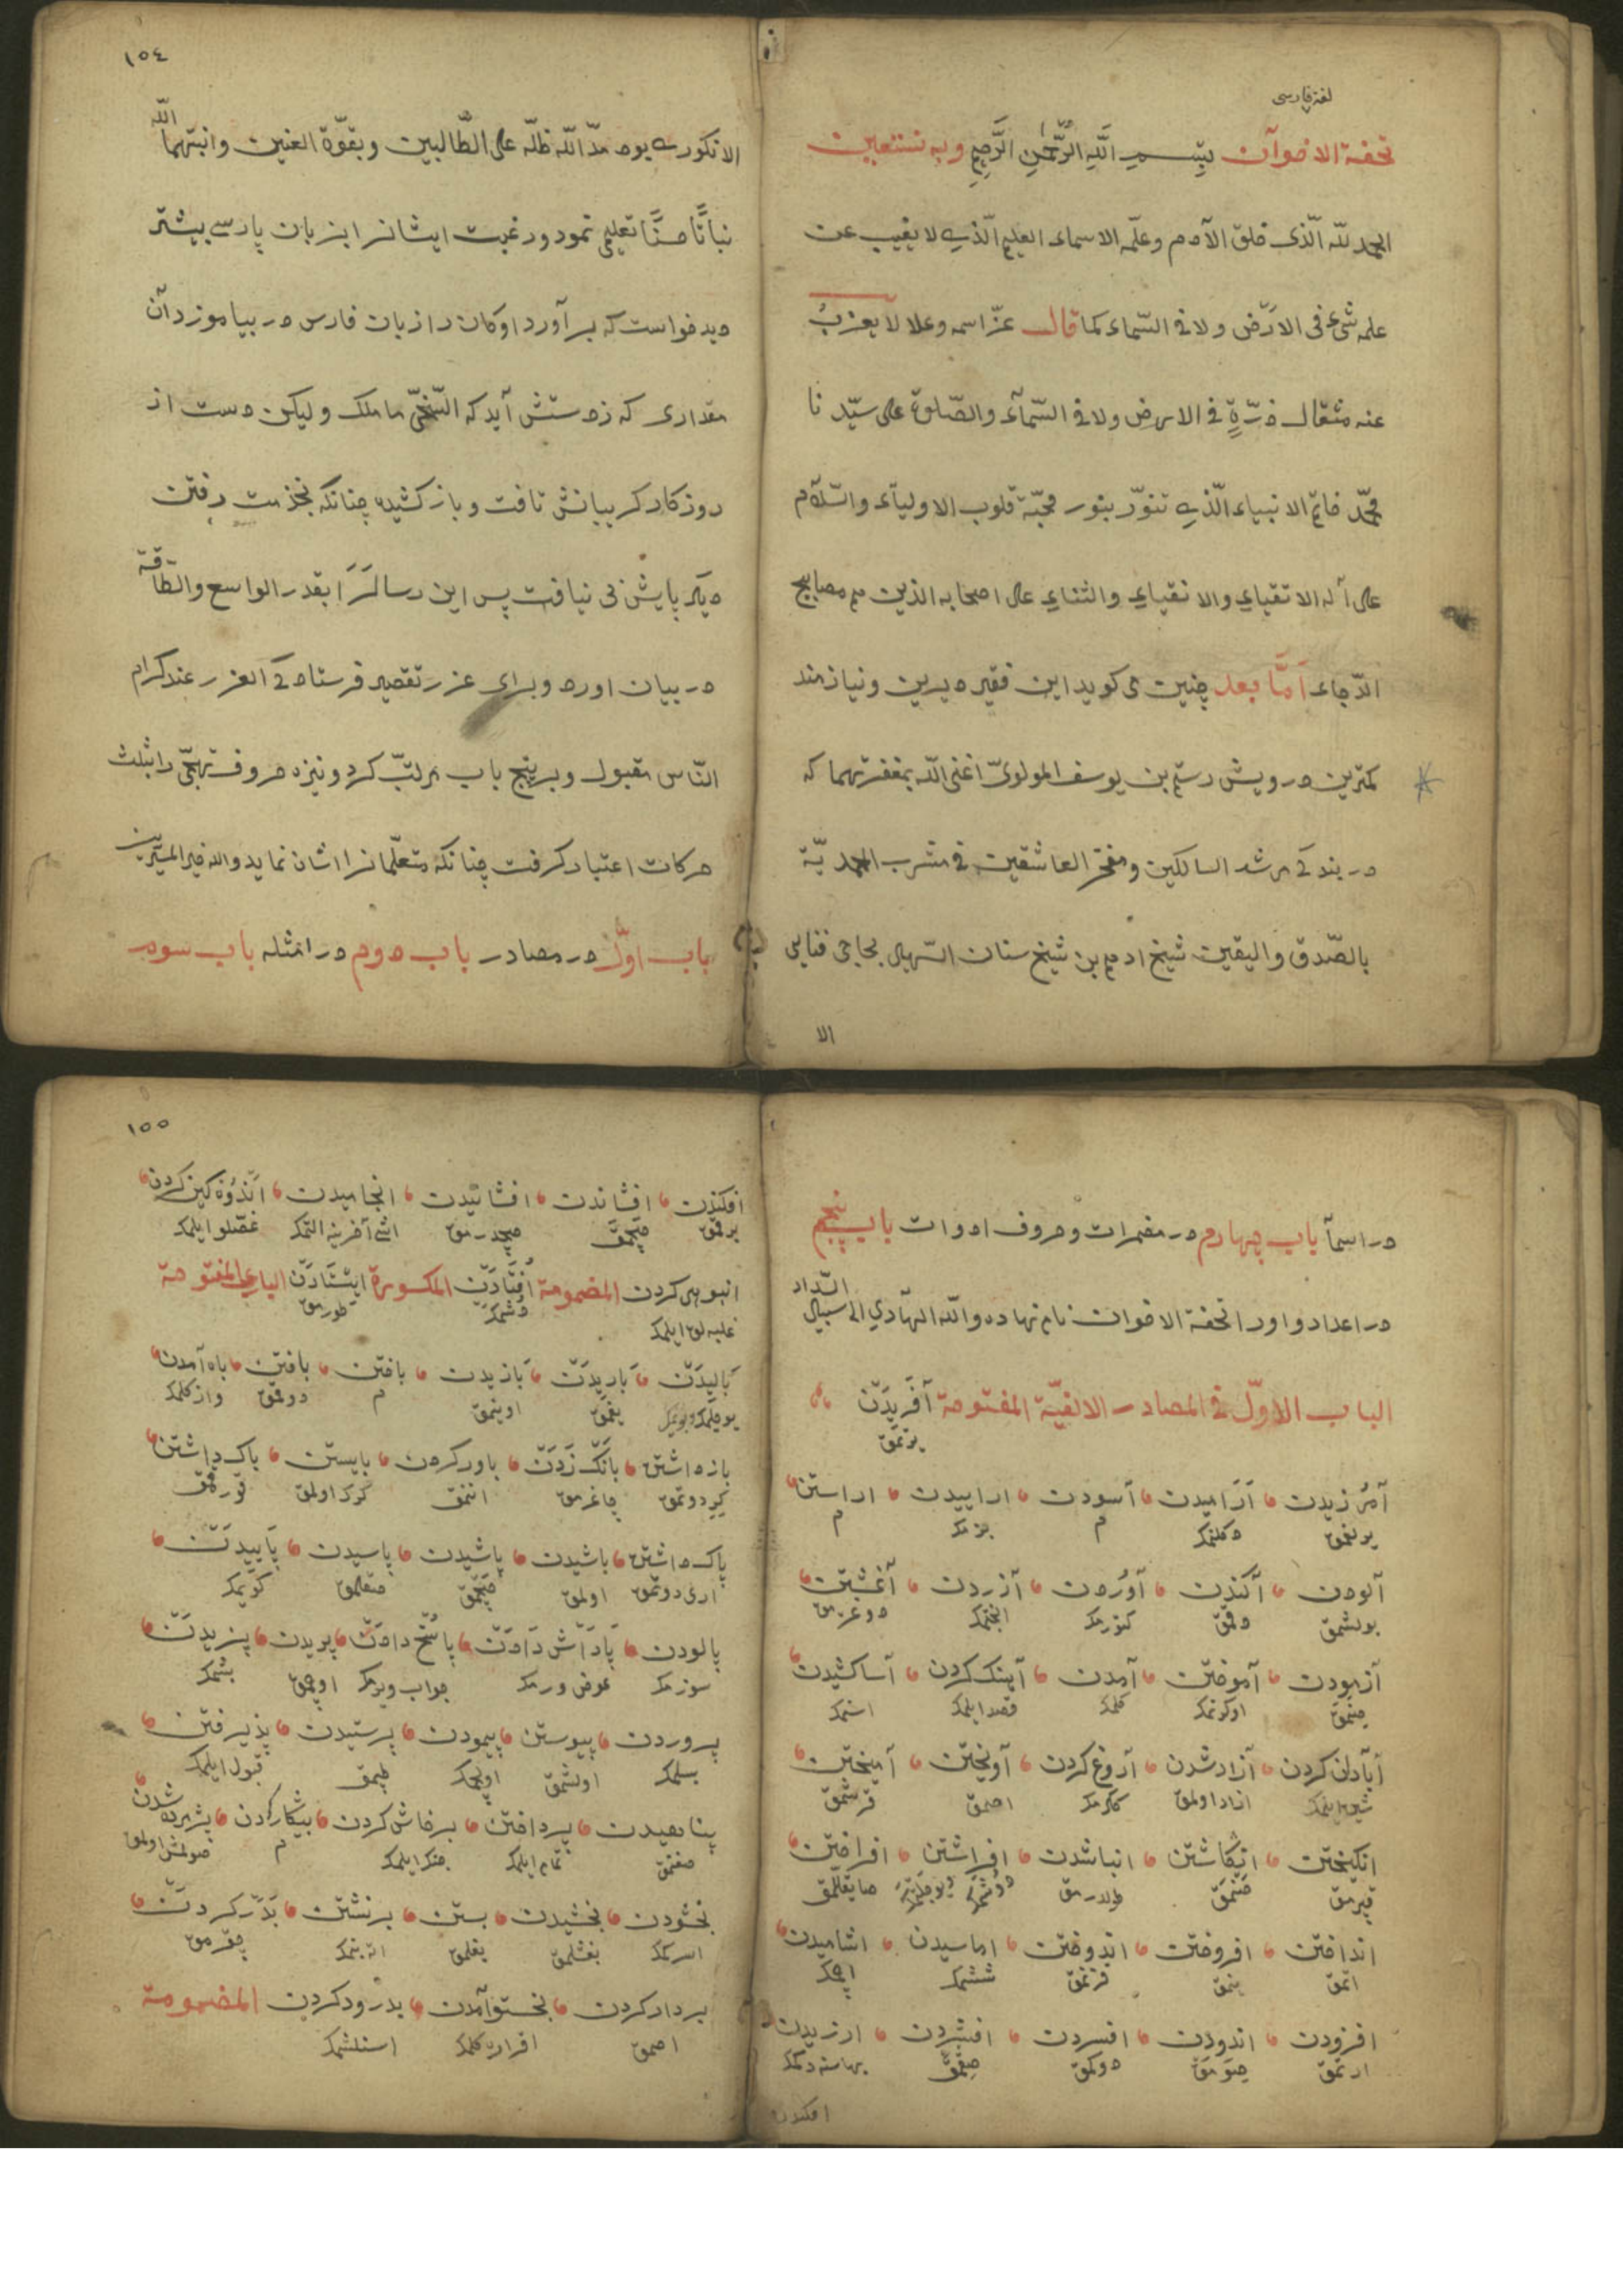 لغة فارسی
تحفة الاخوان بسم الله الرحمن الرحيم وبه نستعين
الحمد لله الّذی خلق الآدم وعلّمه الاسماء العليم الّذی لا يغيب عن
علمه شیء فی الارض ولا فی السّماء كما قال عزّ اسمه وعلا لا يعزب
عنه مثقال ذرّةٍ فی الارض ولا فی السّمآء والصّلوة علی سيّدنا
محمّد خاتم الانبياء الّذی تنوّر بنور محبّة قلوب الاولياء والسّلام
علی آله الاتقياء والانقياء والثناء علی اصحابه الذين هم مصابيح
الدّجاء امّا بعد چنين می كويد اين فقير ديرين ونيازمند
كمترين درويش رستم بن يوسف المولویّ اغنی الله بمغفرتهما كه
در بندكی مرشد السالكين ومفخر العاشقين فی مشرب المحمديّة
بالصّدق واليقين شيخ ادهم بن شيخ سنان الشهير بحاجی فنایی
الا
١٥٤
الانكوری يوم مدّ الله ظلّه علی الطّالبين وبقوّة العنين وانبتهما الله
نباتًا حسنًا تعليم نمود ورغبت ايشانرا بزبان پارسی بيشتر
ديد خواست كه بر آورد اوكان را زبان فارس در بياموزد آن
مقداری كه زدستش آيد كه السّخیّ ما ملك وليكن دست از
روزكار كريبانش تافت وباز كشيده چنانكه بخذمت رفتن
ديكر پايش نی نيافت پس اين رسالۀ را بقدر الواسع والطّاقة
در بيان اورد وبرای عزر تقصير فرستاد كی العزر عند كرام
النّاس مقبول وبر پنج باب مرتّب كرد ونيزه حروف تهجّی را بثلث
حركات اعتبار كرفت چنانكه متعلّمانرا اشان نمايد والله خير الميسّرين
باب اوّل در مصادر باب دوم در امثله باب سوم
در اسمآ باب چهارم در مضمرات وحروف ادوات باب پنجم
در اعداد واورا تحفة الاخوان نام نهاده والله الهادي الی سبيل السّداد
الباب الاوّل فی المصادر الالفيّة المفتوحة آفَريدَن
يرتمق
آمرزيدن آرَاميدن آسودن اراييدن اراستن
يرلغمق دكلنمك م بزمك م
آلودن آكندن آوردن آزردن آغشتن
بولشمق دقمق كتورمك انجتمك دوغرمق
آزمودن آموختن آمدن آهنك كردن آسا كشيدن
صنمق اوكرنمك كلمك قصد ايلمك اسنمك
آبادان كردن آزاد شدن آروغ كردن آويختن آميختن
شين ايلمك ازاد اولمق ككرمك اصمق قرشمق
انكيختن انكاشتن انباشدن افراشتن افراختن
قپرمق صنمق طولدرمق
انداختن افروختن اندوختن اماسيدن اشاميدن
اتمق ينمق قزنمق ششمك اچمك
افزودن اندودن افسردن افشردن ارزيدن
ارتمق صومق دوكمق صقمق بهاسنه دكمك
افكندن
١٥٥
افكندن افشاندن افشانيدن انجاميدن اندوه كين كردن
برقمق صچمق صچدرمق ايشی آخرينه التمك غصّلو ايلمك
انبوهی كردن المضمومة اُفتَادَن المكسورة ايستَادَن البایی المفتوحة
غلبه لق ايلمك دشمك طورمق
باليدَن باريدَن بازيدن بافتن بافتن باه آمدن
يغمق اوينمق م دوقمق واز كلمك
باز داشتن بانك زَدَن باور كردن بايستن باك داشتن
كيرو دوتمق چاغرمق اننمق كرك اولمق قورقمق
پاك داشتن باشيدن پاشيدن پاسيدن پاييدَن
اری دوتمق اولمق صچمق صقلمق كوتمك
پالودن پَادَاش دَادَن پاسخ دادن پريدن پزيدَن
سوزمك عوض ورمك جواب ويرمك اوچمق بشمك
پروردن پيوستن پيمودن پرستيدن پذيرفتن
بسلمك اولشمق اولچمك طپمق قبول ايلمك
پناهيدن پرداختن پرخاش كردن پيكار كردن پژمرده شدن
صغنمق تمام ايلمك جنك ايلمك م صولمش اولمق
بخشودن بخشيدن بستن برنشتن بَدَر كردَن
اسركمك بغشلمق بغلمق اته بنمك چقرمق
بردار كردن بخستو آمدن بدرود كردن المضمومة
اصمق اقراره كلمك اسنلشمك